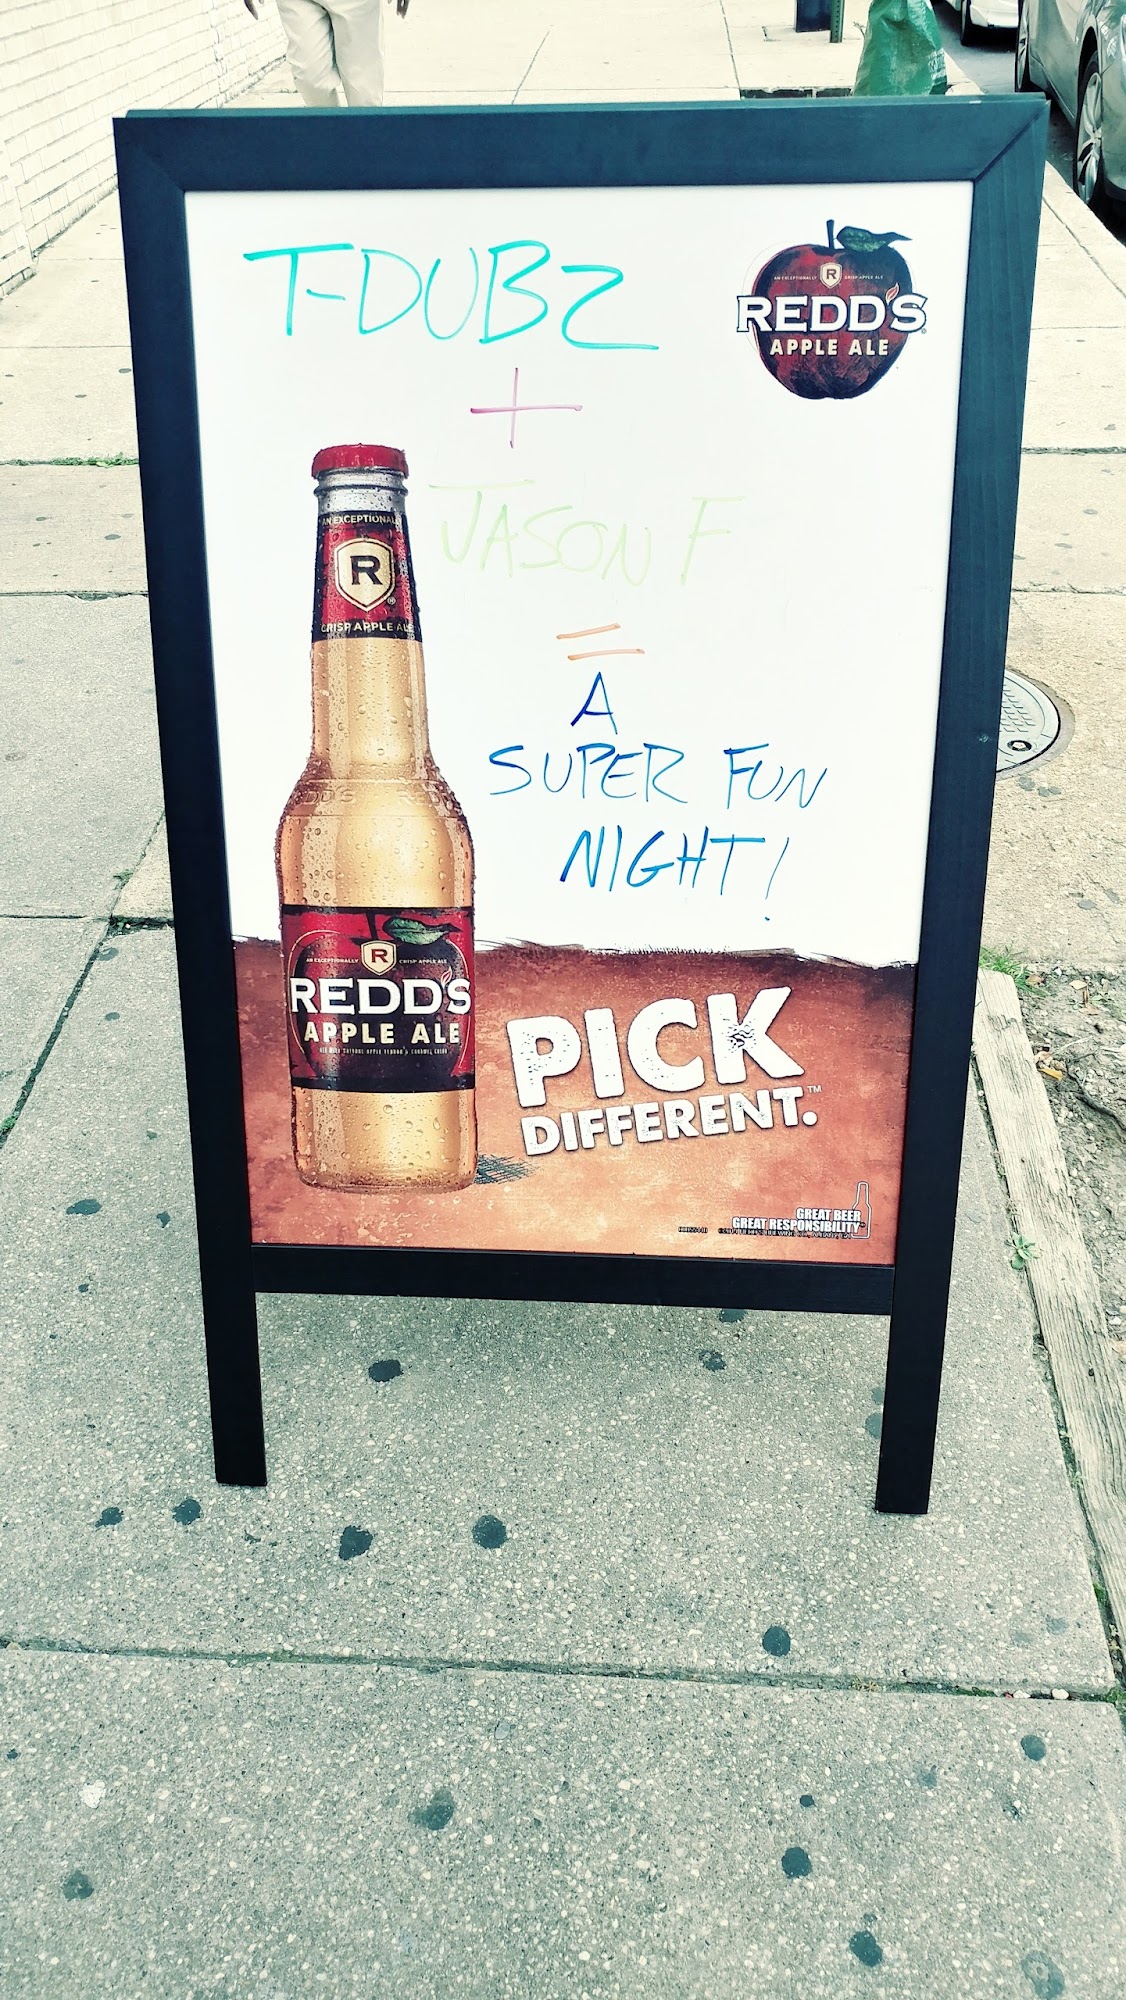 T-DUBZ
AN EXCEPTIONALLY R CRISP APPLE ALE
REDD'S
APPLE ALE
+
JASON F
=
A
SUPER FUN
NIGHT!
AN EXCEPTIONAL
R
CRISP APPLE ALE
AN EXCEPTIONALLY R CRISP APPLE ALE
REDD'S
APPLE ALE
PICK
DIFFERENT.™
GREAT BEER
GREAT RESPONSIBILITY